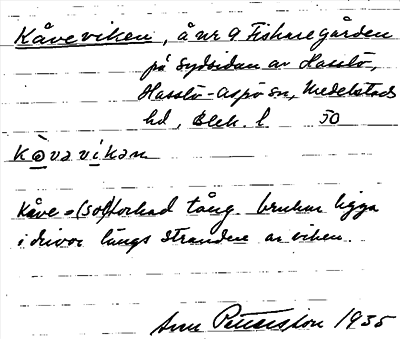 Kåveviken, å nr 9 Fiskaregården
på sydsidan av Hasslö,
Hasslö-Aspö sn, Medelstads
hd, Blek. l 50
kòvavikan
Kåve = (sol)torkad tång brukar ligga
i drivor längs stranden av viken.
Arne Pettersson 1935